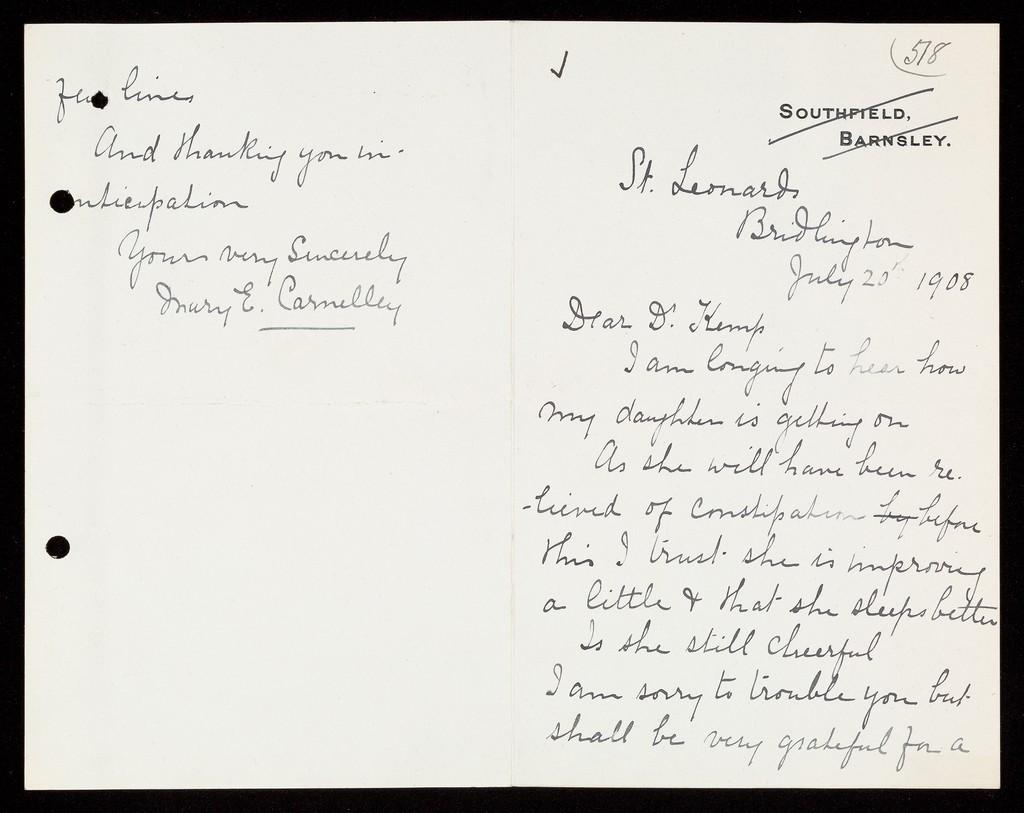 518
SOUTHFIELD,
BARNSLEY.
St. Leonards
Bridlington
July 20th 1908
Dear Dr. Kemp
I am longing to hear how
my daughter is getting on
As she will have been re-
-lieved of constipation by before
this I trust she is improving
a little & that she sleeps better
Is she still cheerful
I am sorry to trouble you but
shall be very grateful for a
few lines
And thanking you in-
anticipation
Yours very Sincerely
Mary E. Carnelley